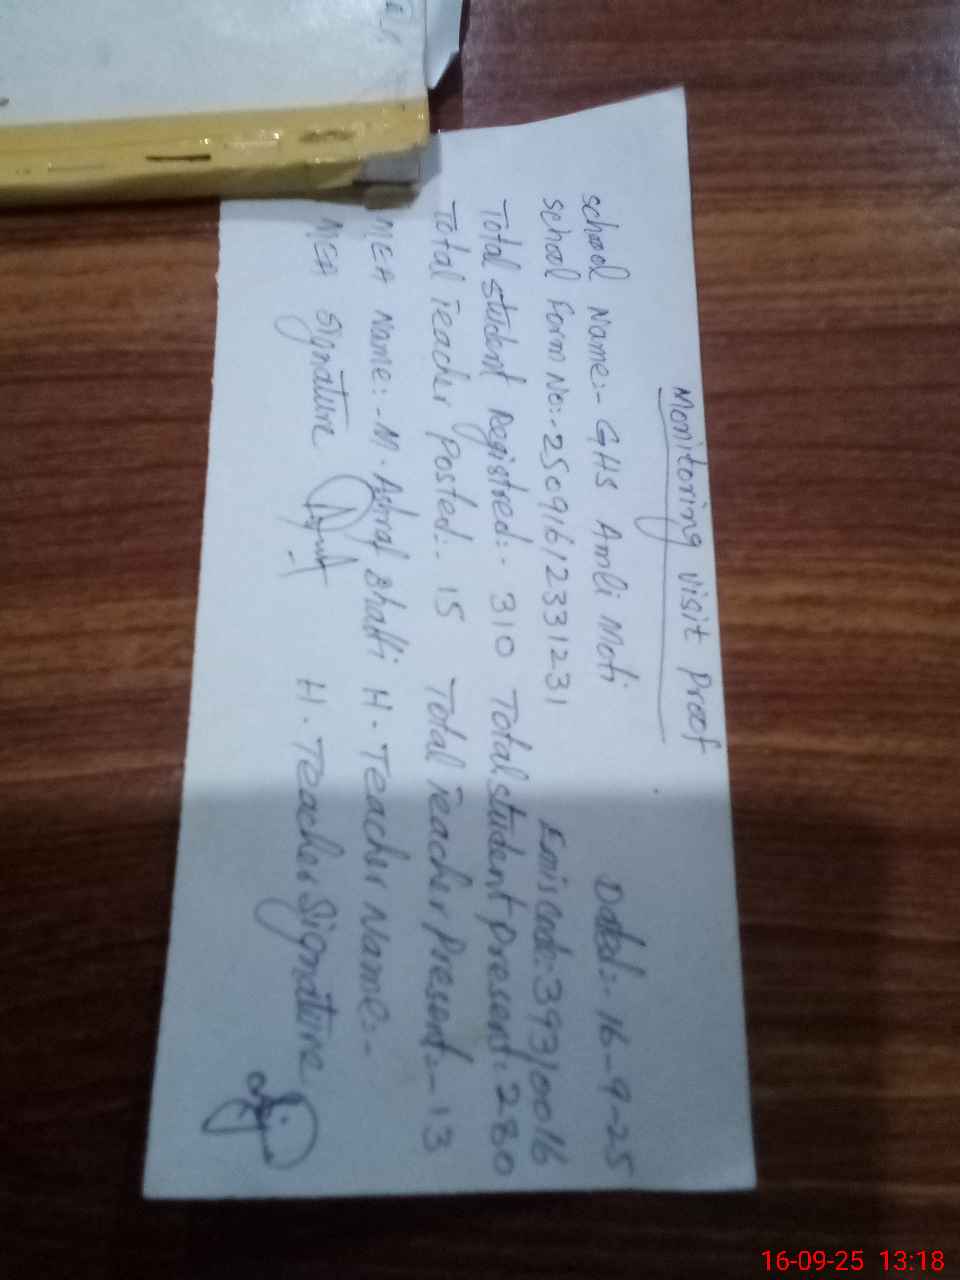 Monitoring Visit Proof
School Name:- GHS Amli Moti Dated:- 16-9-25
School Form No:- 25091612331231 Emis code: 39310016
Total student Registred:- 310 Total student present: 280
Total Teacher Posted:- 15 Total Teacher Present:- 13
MEA Name:- M. Ashraf Bhatti H. Teacher Name:-
MEA Signature H. Teacher Signature
16-09-25 13:18